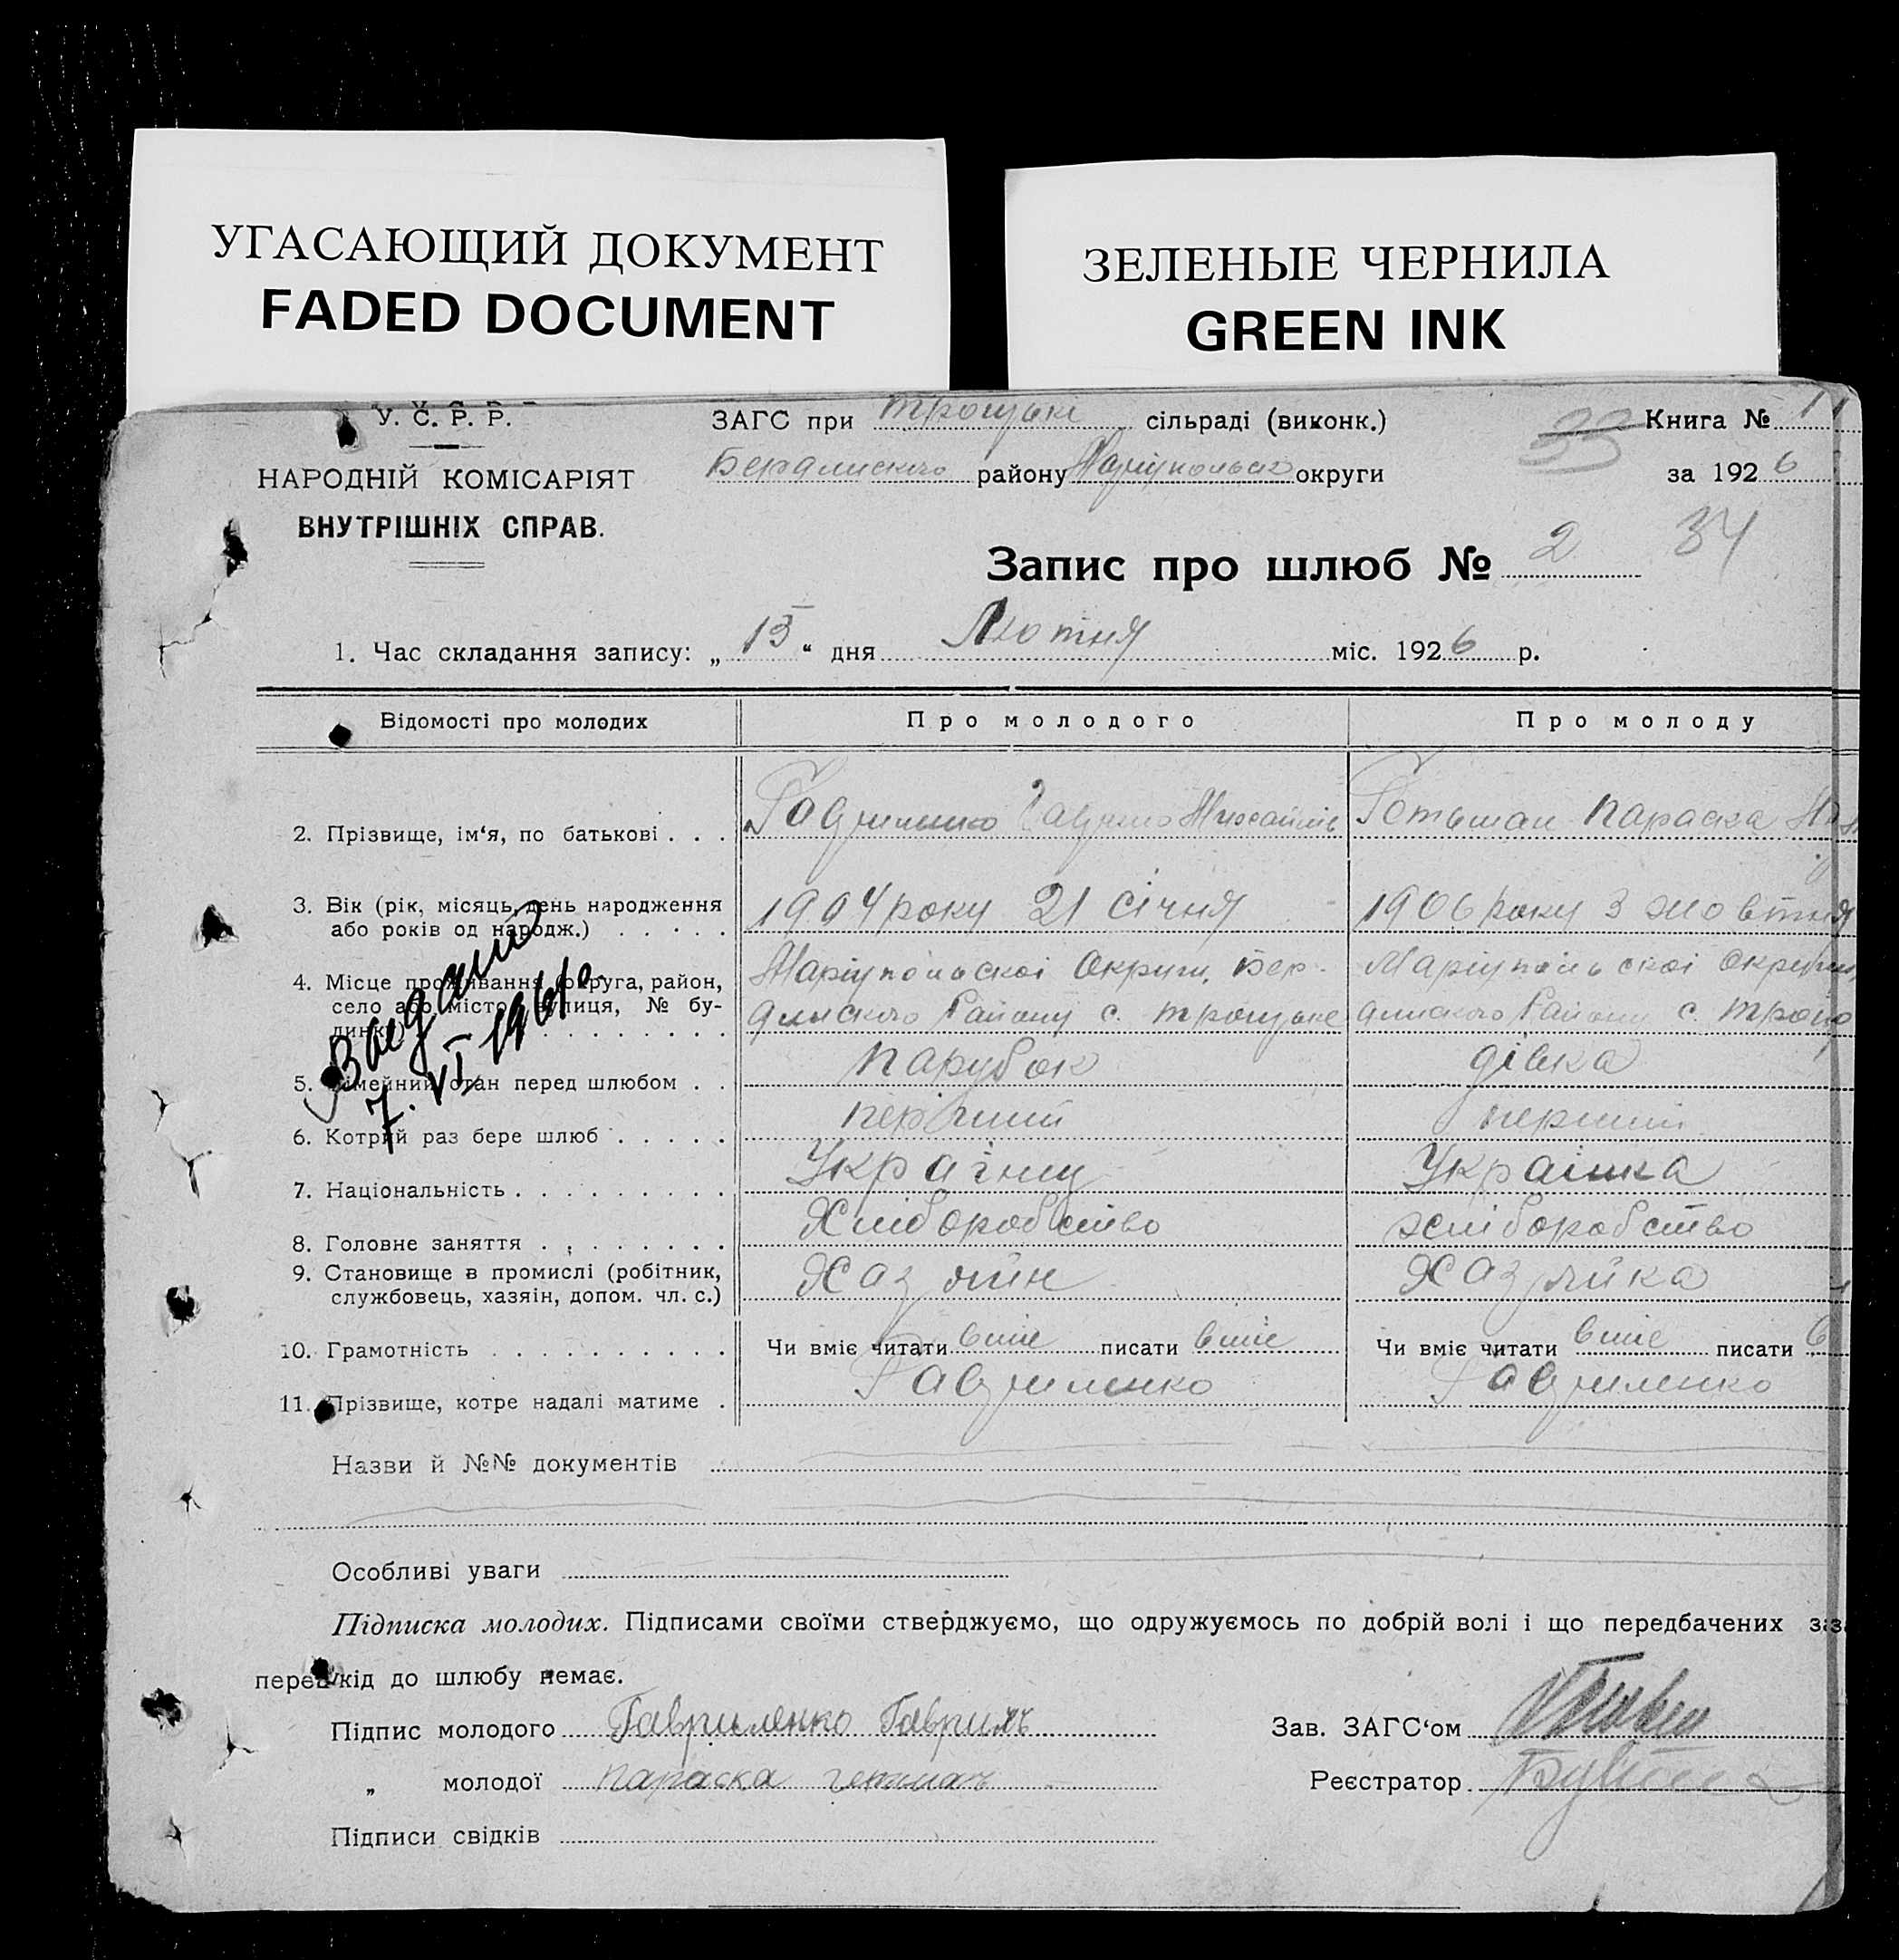 УГАСАЮЩИЙ ДОКУМЕНТ
FADED DOCUMENT
ЗЕЛЕНЫЕ ЧЕРНИЛА
GREEN INK
У. С. Р. Р.
НАРОДНІЙ КОМІСАРІЯТ
ВНУТРІШНІХ СПРАВ.
ЗАГС при сільраді (виконк.)
району округи
33
Книга № 1
за 1926
Запис про шлюб № 2 34
1. Час складання запису: „ 13 “ дня Лютня міс. 1926 р.
Відомості про молодих
Про молодого
Про молоду
2. Прізвище, ім‘я, по батькові . . .
Гетьман Параска
3. Вік (рік, місяць, день народження
або років од народж.) . . . . .
1904 року 21 січня
1906 року 3 жовтня
4. Місце проживання (округа, район,
село або місто, вулиця, № бу-
динку)
Маріупольскоі Округи, Бер-
Маріупольскоі Округи,
Району с.
Району с.
7. VI 1961 г.
5. Сімейний стан перед шлюбом . .
парубок
дівка
6. Котрий раз бере шлюб . . . . .
перший
перший
7. Національність . . . . . . . . .
Україньц
Украінка
8. Головне заняття . . . . . . . .
Хліборобство
хліборобство
9. Становище в промислі (робітник,
службовець, хазяін, допом. чл. с.)
Хазяйн
Хазяйка
10. Грамотність . . . . . . . . . .
Чи вміє читати вміє писати вміє
Чи вміє читати вміє писати в
11. Прізвище, котре надалі матиме .
Гавриленко
Гавриленко
Назви й №№ документів
Особливі уваги
Підписка молодих. Підписами своїми стверджуємо, що одружуємось по добрій волі і що передбачених за
перешкід до шлюбу немає.
Підпис молодого Гавриленко Гаврилъ
Зав. ЗАГС‘ом
„ молодої Параска гетман
Реєстратор
Підписи свідків